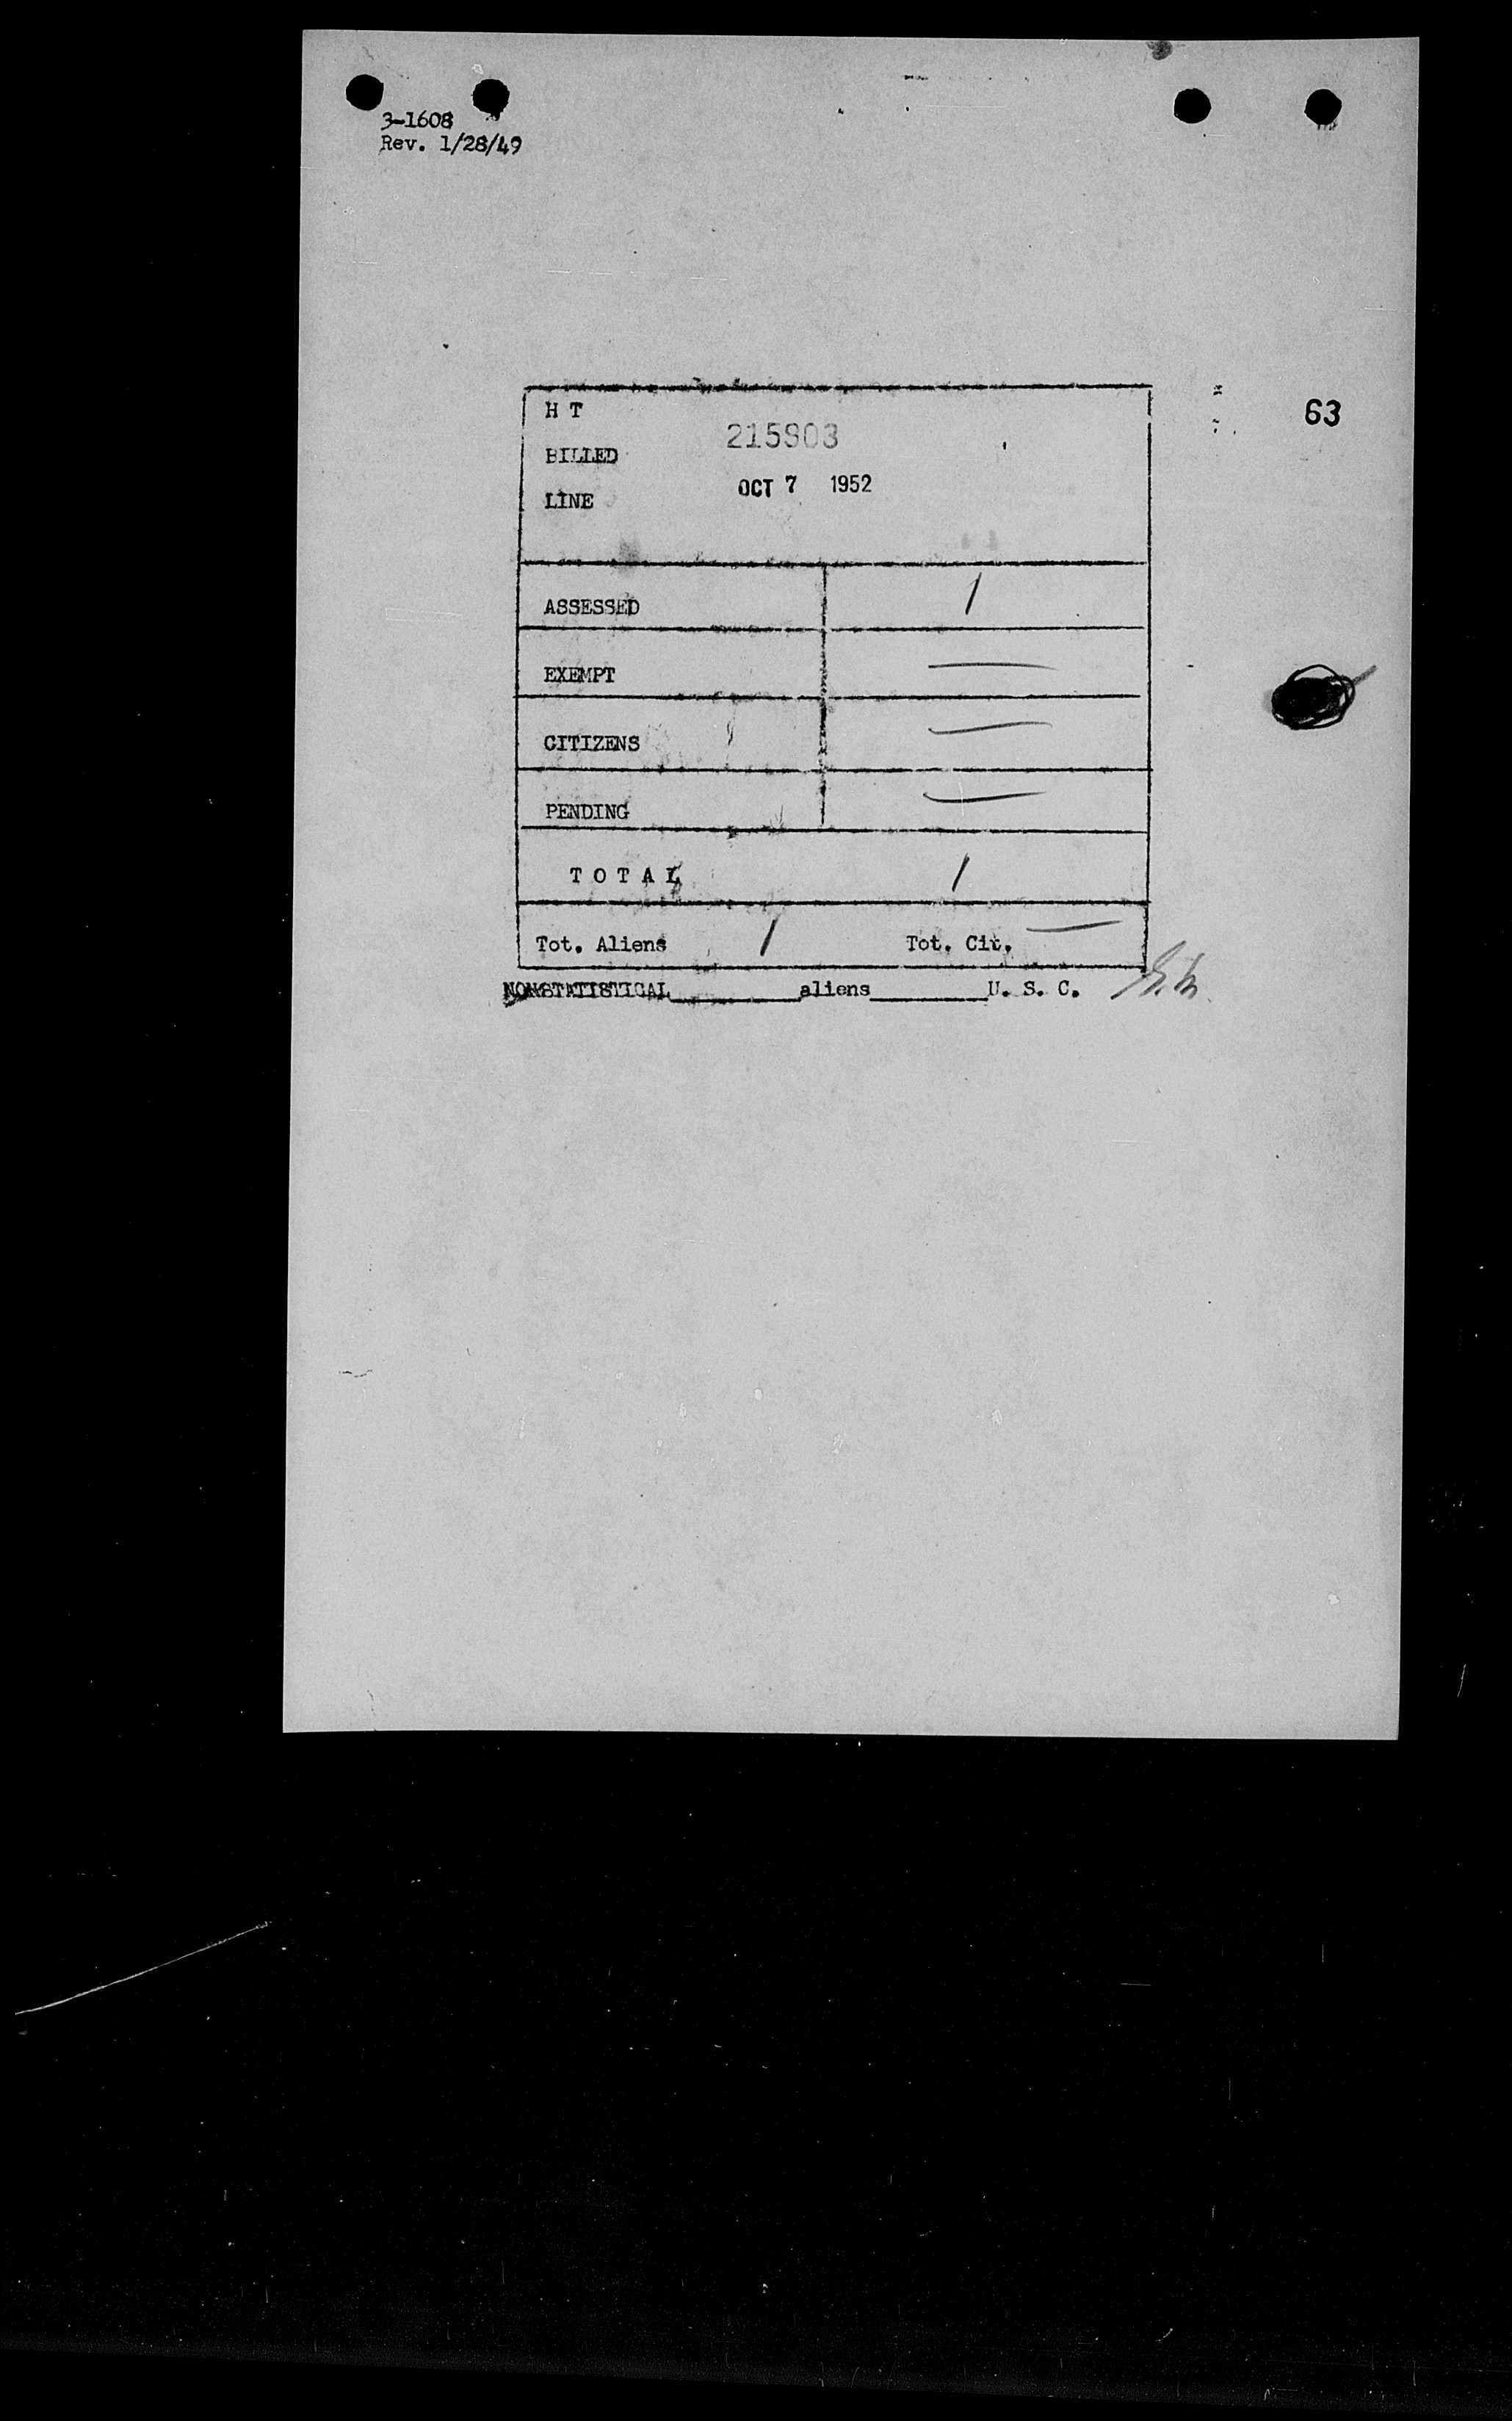 3-1608
Rev. 1/28/49
63
H T
215903
BILLED
OCT 7 1952
LINE
ASSESSED 1
EXEMPT —
CITIZENS —
PENDING —
T O T A L 1
Tot. Aliens 1 Tot. Cit. —
NONSTATISTICAL__________aliens__________U. S. C.